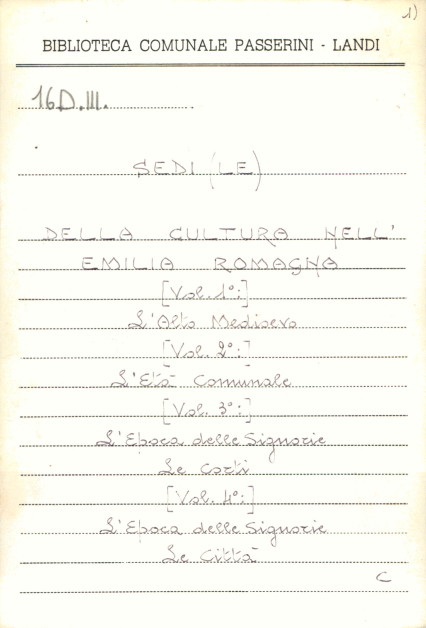 1)
BIBLIOTECA COMUNALE PASSERINI - LANDI
16D.III.
SEDI (LE)
DELLA CULTURA NELL'
EMILIA ROMAGNA
[Vol. 1°:]
L'Alto Medioevo
[Vol. 2°:]
L'Età Comunale
[Vol. 3°:]
L'Epoca delle Signorie
Le Corti
[Vol. 4°:]
L'Epoca delle Signorie
Le Città
C